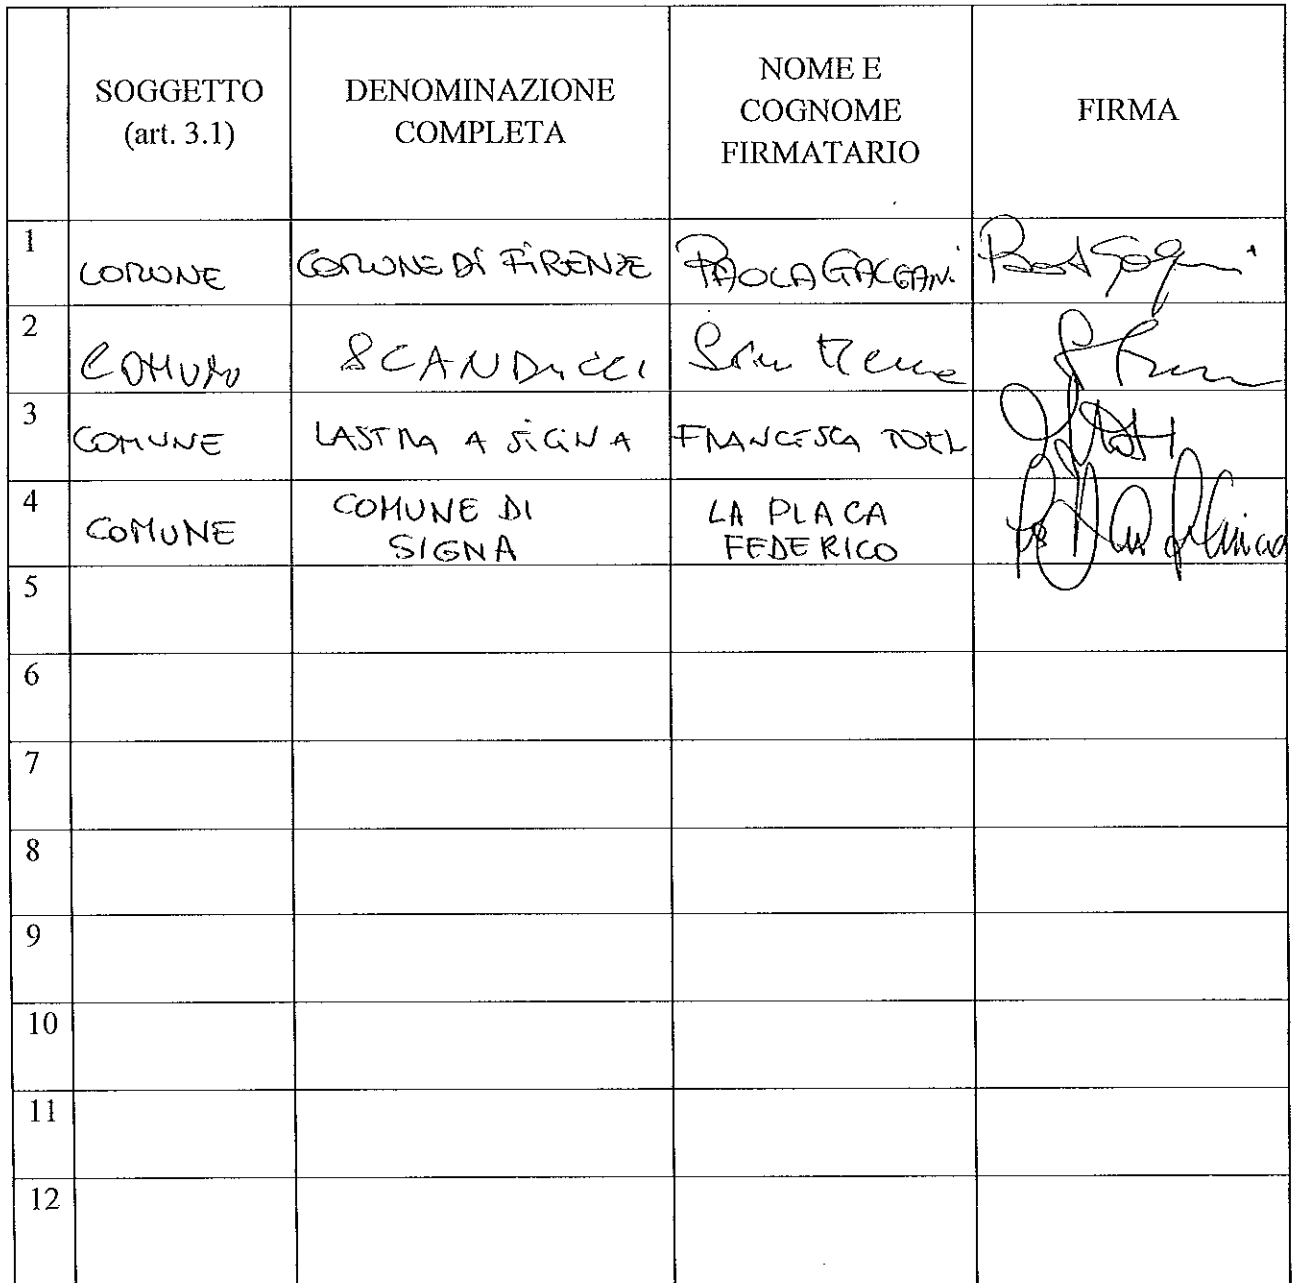 SOGGETTO
(art. 3.1)
DENOMINAZIONE
COMPLETA
NOME E
COGNOME
FIRMATARIO
FIRMA
1
COMUNE
COMUNE DI FIRENZE
PAOLA GALGANI
2
COMUNE
SCANDICCI
3
COMUNE
LASTRA A SIGNA
FRANCESCA
4
COMUNE
COMUNE DI
SIGNA
LA PLACA
FEDERICO
5
6
7
8
9
10
11
12